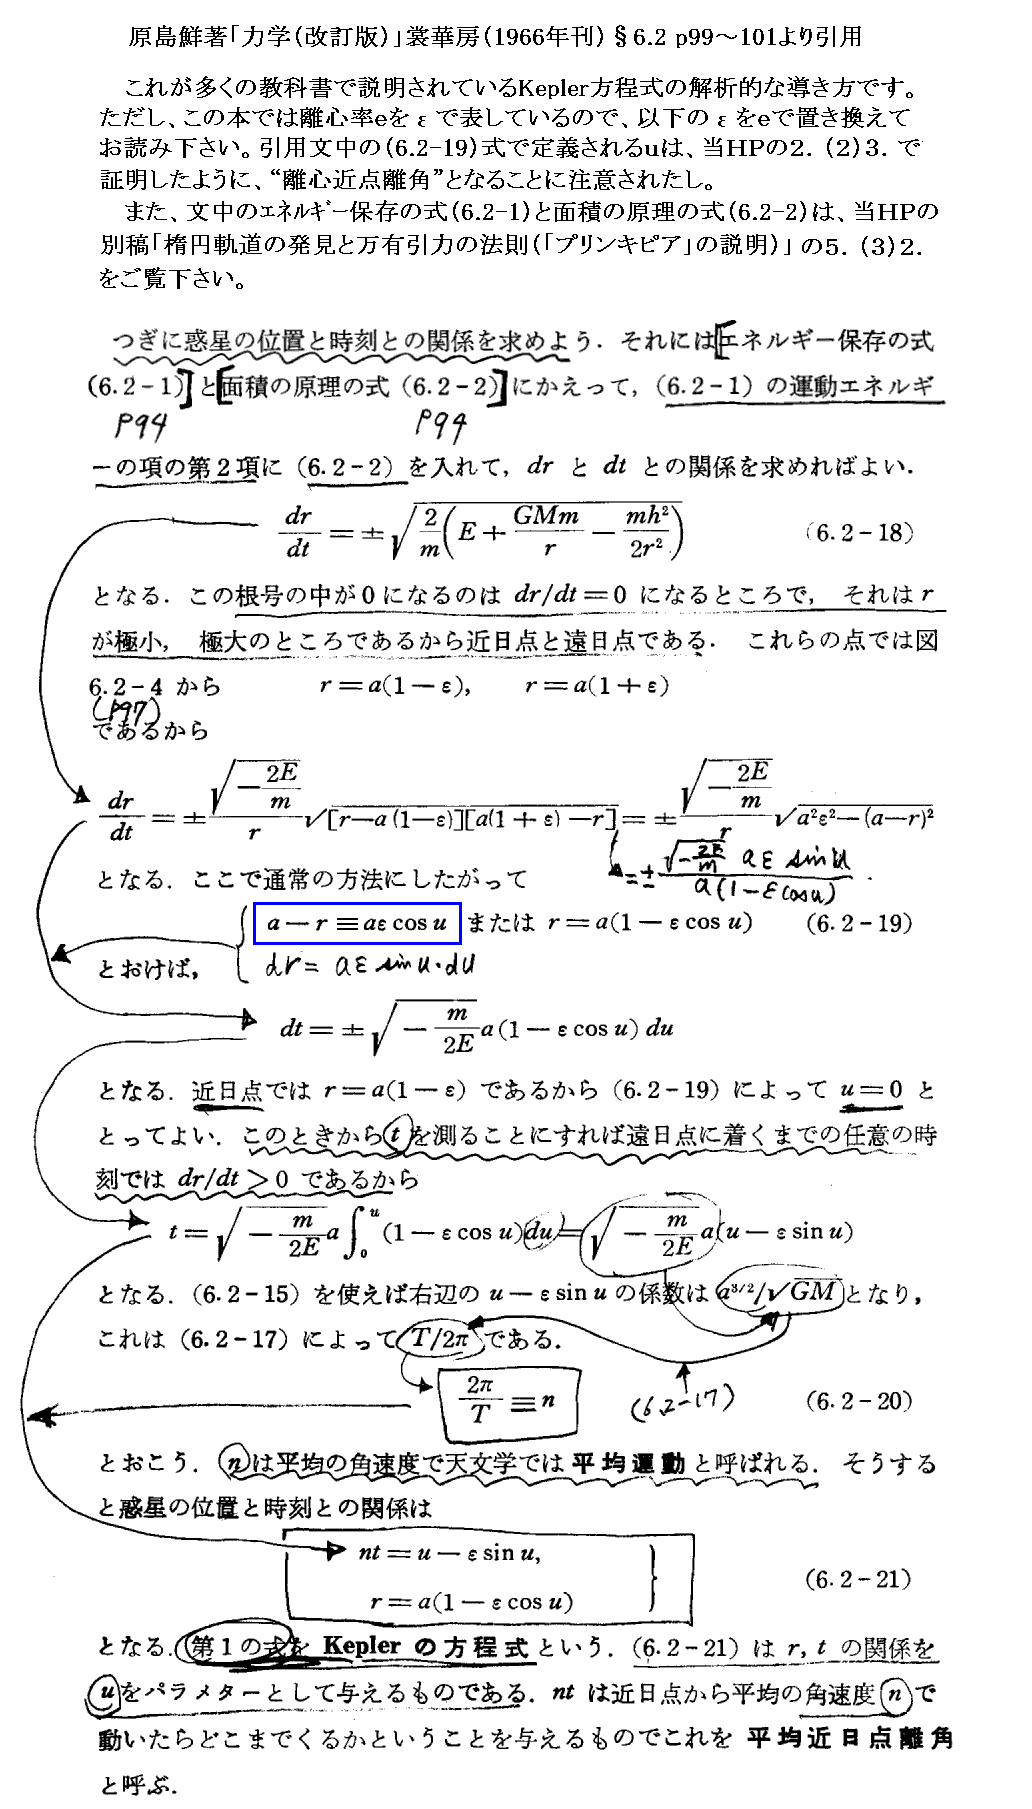 原島鮮著「力学(改訂版)」裳華房(1966年刊) §6.2 p99～101より引用
これが多くの教科書で説明されているKepler方程式の解析的な導き方です。
ただし、この本では離心率eをεで表しているので、以下のεをeで置き換えて
お読み下さい。引用文中の(6.2-19)式で定義されるuは、当HPの2.(2)3.で
証明したように、“離心近点離角”となることに注意されたし。
また、文中のエネルギー保存の式(6.2-1)と面積の原理の式(6.2-2)は、当HPの
別稿「楕円軌道の発見と万有引力の法則(「プリンキピア」の説明)」の5.(3)2.
をご覧下さい。
つぎに惑星の位置と時刻との関係を求めよう．それには[エネルギー保存の式
(6.2-1)]と[面積の原理の式 (6.2-2)]にかえって，(6.2-1) の運動エネルギ
P94 P94
ーの項の第2項に (6.2-2) を入れて，dr と dt との関係を求めればよい．
dr/dt = ±√(2/m (E + GMm/r − mh²/2r²)) (6.2-18)
となる．この根号の中が0になるのは dr/dt=0 になるところで， それは r
が極小， 極大のところであるから近日点と遠日点である． これらの点では図
6.2-4 から r=a(1−ε), r=a(1+ε)
(P97)
であるから
dr/dt = ± √(−2E/m)/r √([r−a(1−ε)][a(1+ε)−r]) = ± √(−2E/m)/r √(a²ε²−(a−r)²)
となる．ここで通常の方法にしたがって = ± √(−2E/m) aε sin u / a(1−ε cos u)
a−r≡aε cos u または r=a(1−ε cos u) (6.2-19)
とおけば， dr = aε sin u・du
dt = ±√(−m/2E) a(1−ε cos u) du
となる．近日点では r=a(1−ε) であるから (6.2-19) によって u=0 と
とってよい．このときから t を測ることにすれば遠日点に着くまでの任意の時
刻では dr/dt>0 であるから
t = √(−m/2E) a∫₀ᵘ (1−ε cos u)du = √(−m/2E) a(u−ε sin u)
となる．(6.2-15) を使えば右辺の u−ε sin u の係数は a^{3/2}/√GM となり，
これは (6.2-17) によって T/2π である．
2π/T ≡ n (6.2-17) (6.2-20)
とおこう．n は平均の角速度で天文学では 平均運動 と呼ばれる． そうする
と惑星の位置と時刻との関係は
nt = u−ε sin u,
r = a(1−ε cos u) } (6.2-21)
となる．第1の式を Kepler の方程式 という．(6.2-21) は r, t の関係を
u をパラメターとして与えるものである．nt は近日点から平均の角速度 n で
動いたらどこまでくるかということを与えるものでこれを 平均近日点離角
と呼ぶ．